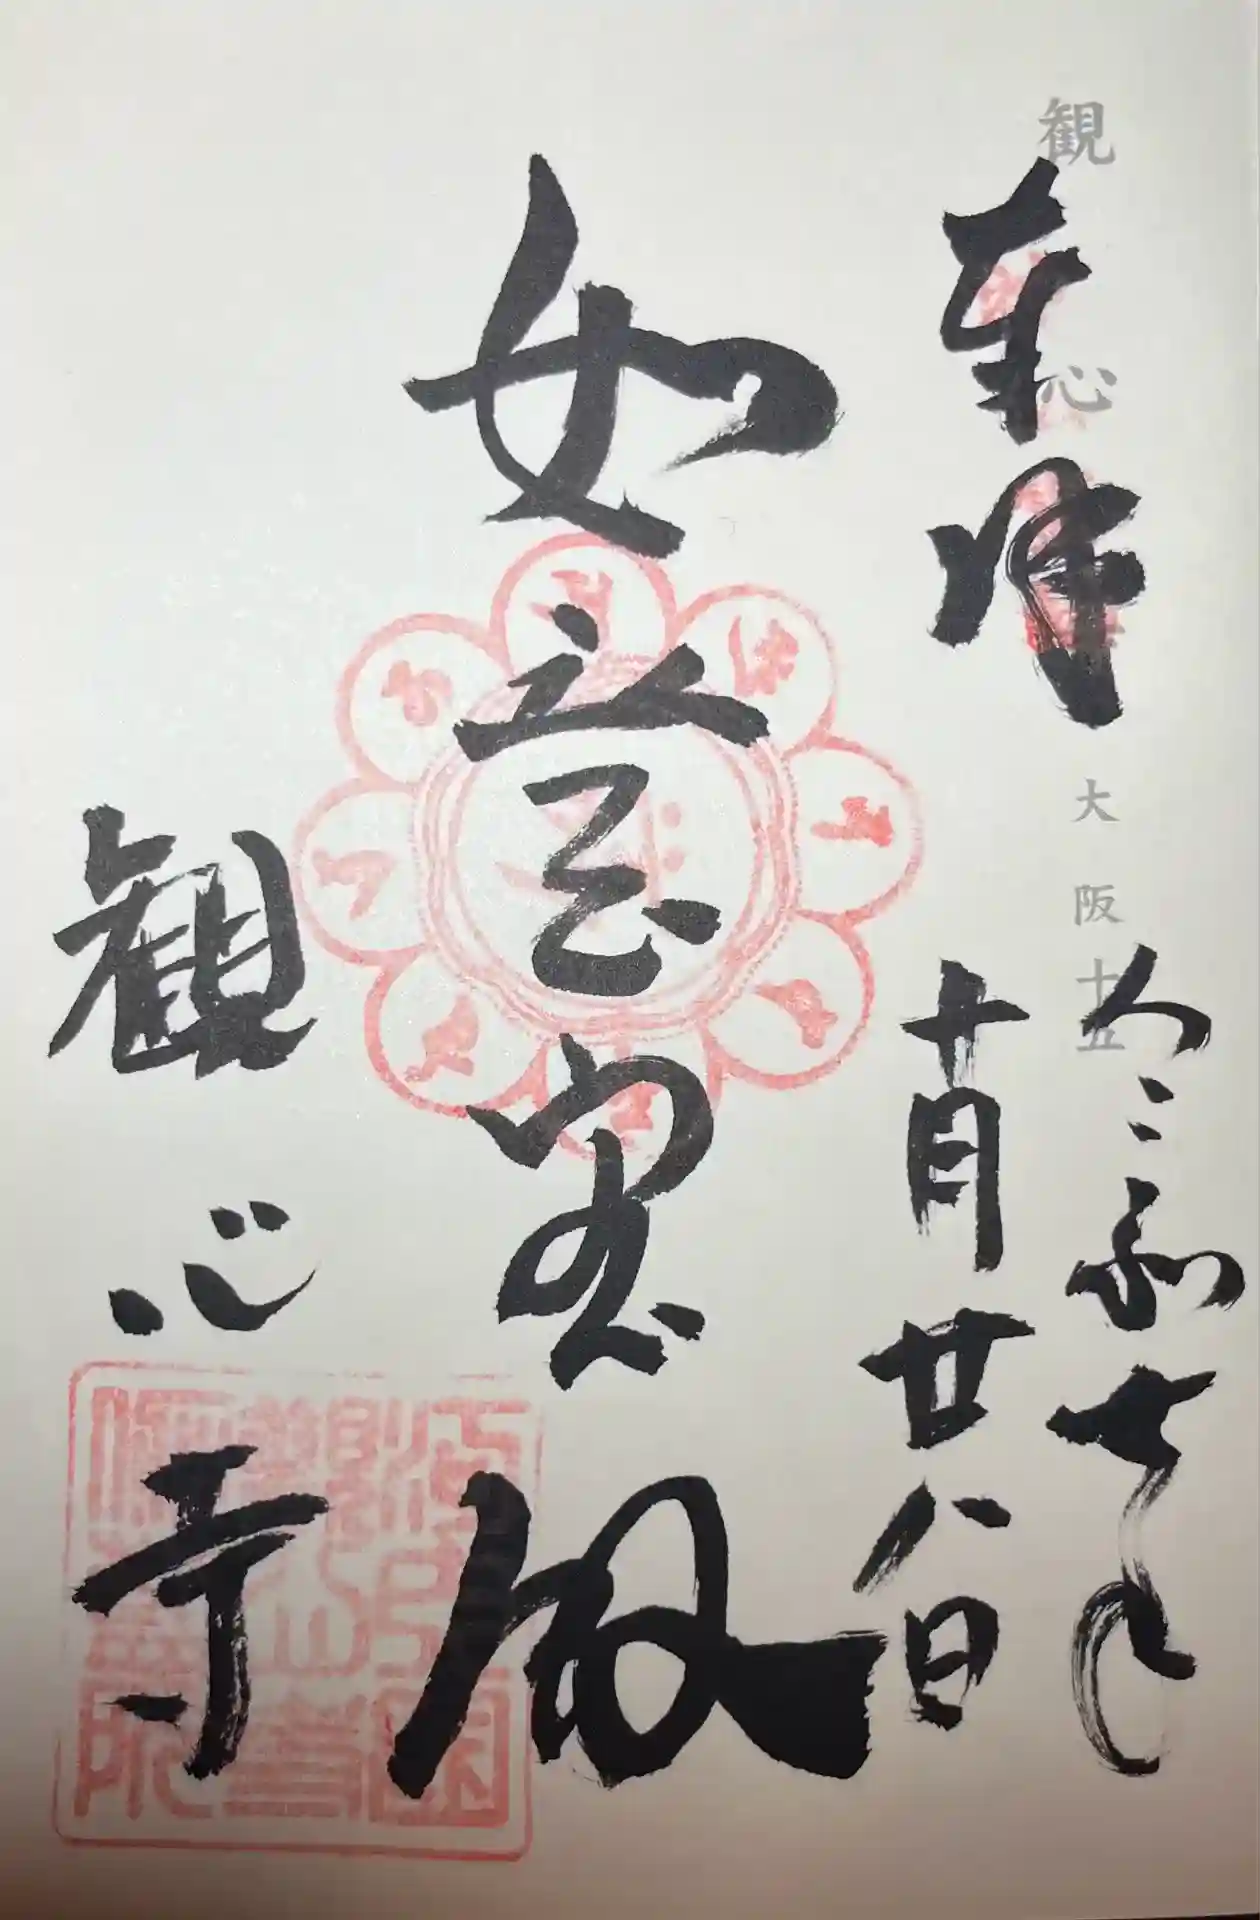 観心
大阪十五
奉拝
令和七年
十月廿八日
如意宝殿
観心寺